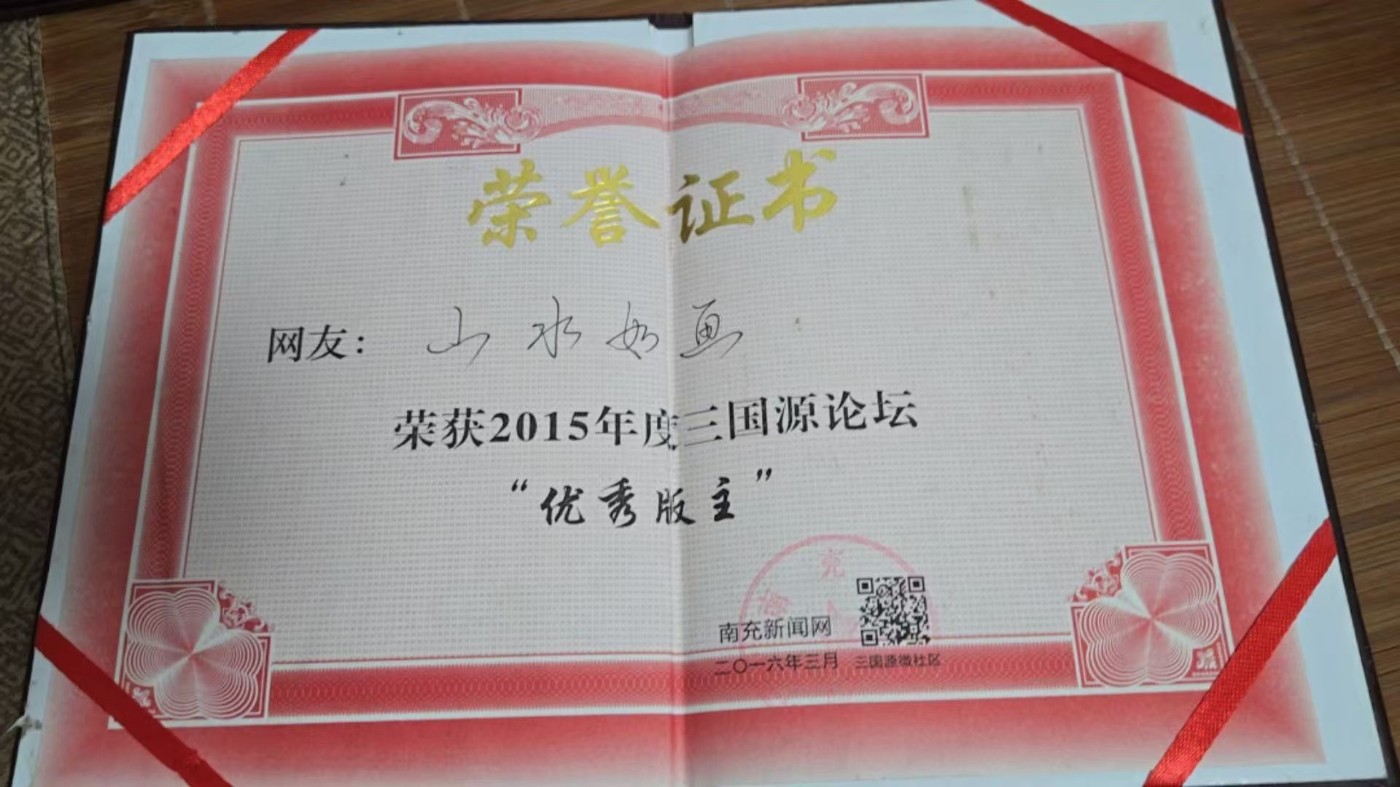 荣誉证书
网友：山水如画
荣获2015年度三国源论坛
“优秀版主”
南充新闻网
二〇一六年三月 三国源微社区